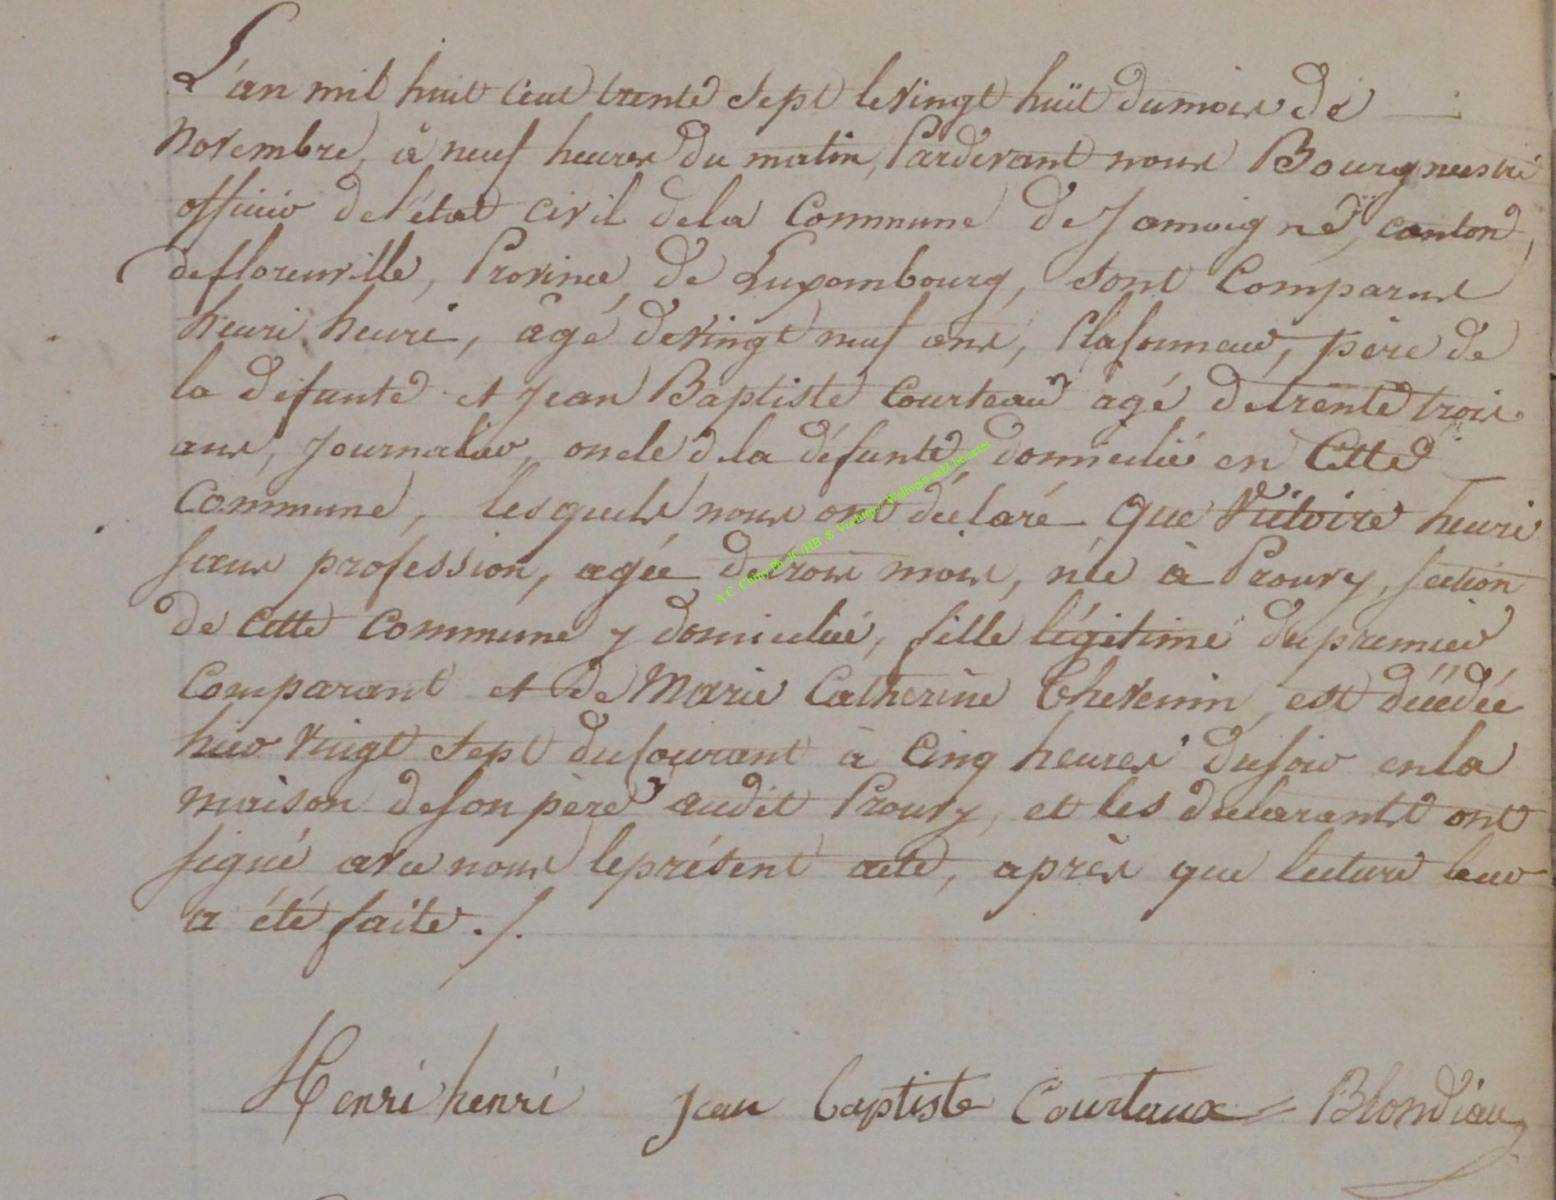 L'an mil huit cent trente sept le vingt huit du mois de
Novembre, à neuf heures du matin, Pardevant nous Bourgmestre
officier de l'état civil de la Commune de Jamoigne, canton
de florenville, Province de Luxembourg, sont Comparus
henri henri, âgé de vingt neuf ans, Plafonneur, père de
la défunte et Jean Baptiste Courteau âgé de trente trois
ans, Journalier, oncle d la défunte, domiciliés en Cette
Commune, lesquels nous ont déclaré que Victoire henri
sans profession, agée de trois mois, née à Prouvy, section
de Cette Commune y domiciliée, fille légitime du premier
Comparant et de Marie Catherine Thevenin, est décédée
hier vingt sept du courant à Cinq heures du soir en la
maison de son père audit Prouvy, et les déclarants ont
signé avec nous le présent acte, après que lecture leur
a été faite ./.
Henri henri Jean baptiste Courtaux Blondiau